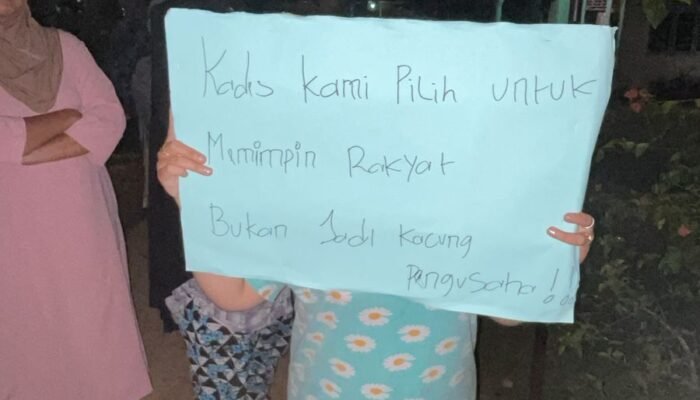 Kadis kami Pilih untuk
Memimpin Rakyat
Bukan Jadi Kacung
Pengusaha!!